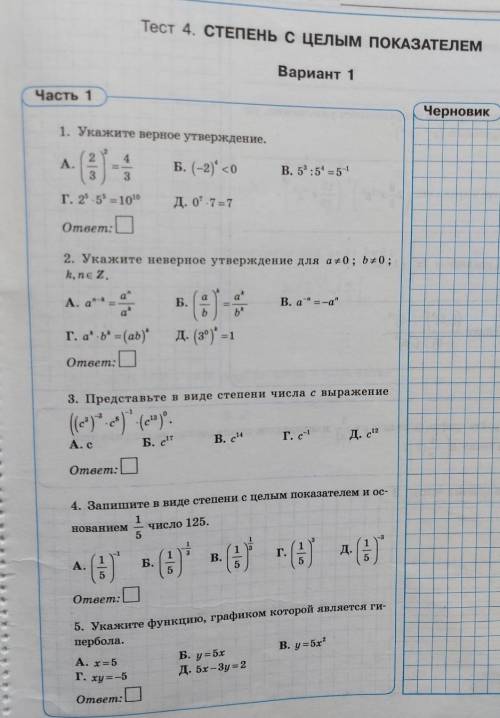 Тест 4. СТЕПЕНЬ С ЦЕЛЫМ ПОКАЗАТЕЛЕМ
Вариант 1
Часть 1
Черновик
1. Укажите верное утверждение.
А. (2/3)^2 = 4/3 Б. (−2)^4 <0 В. 5^3 : 5^4 = 5^−1
Г. 2^5 · 5^5 = 10^10 Д. 0^7 · 7 = 7
Ответ:
2. Укажите неверное утверждение для a≠0; b≠0;
k, n ∈ Z.
А. a^(n−k) = a^n/a^k Б. (a/b)^k = a^k/b^k В. a^−n = −a^n
Г. a^k · b^k = (ab)^k Д. (3^0)^k = 1
Ответ:
3. Представьте в виде степени числа c выражение
((c^3)^−3 · c^8)^−1 · (c^13)^0.
А. c Б. c^17 В. c^14 Г. c^−1 Д. c^12
Ответ:
4. Запишите в виде степени с целым показателем и ос-
нованием 1/5 число 125.
А. (1/5)^−1 Б. (1/5)^−1/3 В. (1/5)^1/3 Г. (1/5)^3 Д. (1/5)^−3
Ответ:
5. Укажите функцию, графиком которой является ги-
пербола.
А. x = 5 Б. y = 5x В. y = 5x^2
Г. xy = −5 Д. 5x − 3y = 2
Ответ: